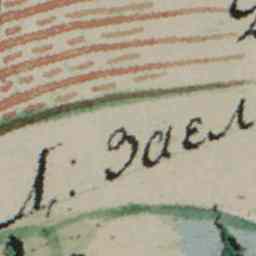 Л: Заел